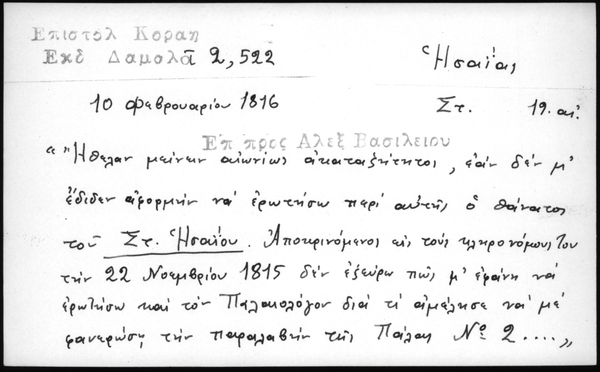 Επιστολ Κοραη
Εκδ Δαμαλᾶ 2,522
Ἡσαΐας
10 Φεβρουαρίου 1816
Στ. 19. αἰ.
Επ προς Αλεξ Βασιλειου
“Ἤθελαν μείνειν αἰωνίως ἀκαταζήτητοι, ἐάν δέν μ'
ἔδιδεν ἀφορμήν νά ἐρωτήσω περί αὐτῆς ὁ θάνατος
τοῦ Στ. Ἡσαΐου. Ἀποκρινόμενος εἰς τούς κληρονόμους του
τήν 22 Νοεμβρίου 1815 δέν ἐξεύρω πῶς μ' ἐφάνη νά
ἐρωτήσω καί τόν Παλαιολόγον διά τί ἀμέλησε νά μέ
φανερώσῃ τήν παραλαβήν τῆς Πάλας Νο 2....„